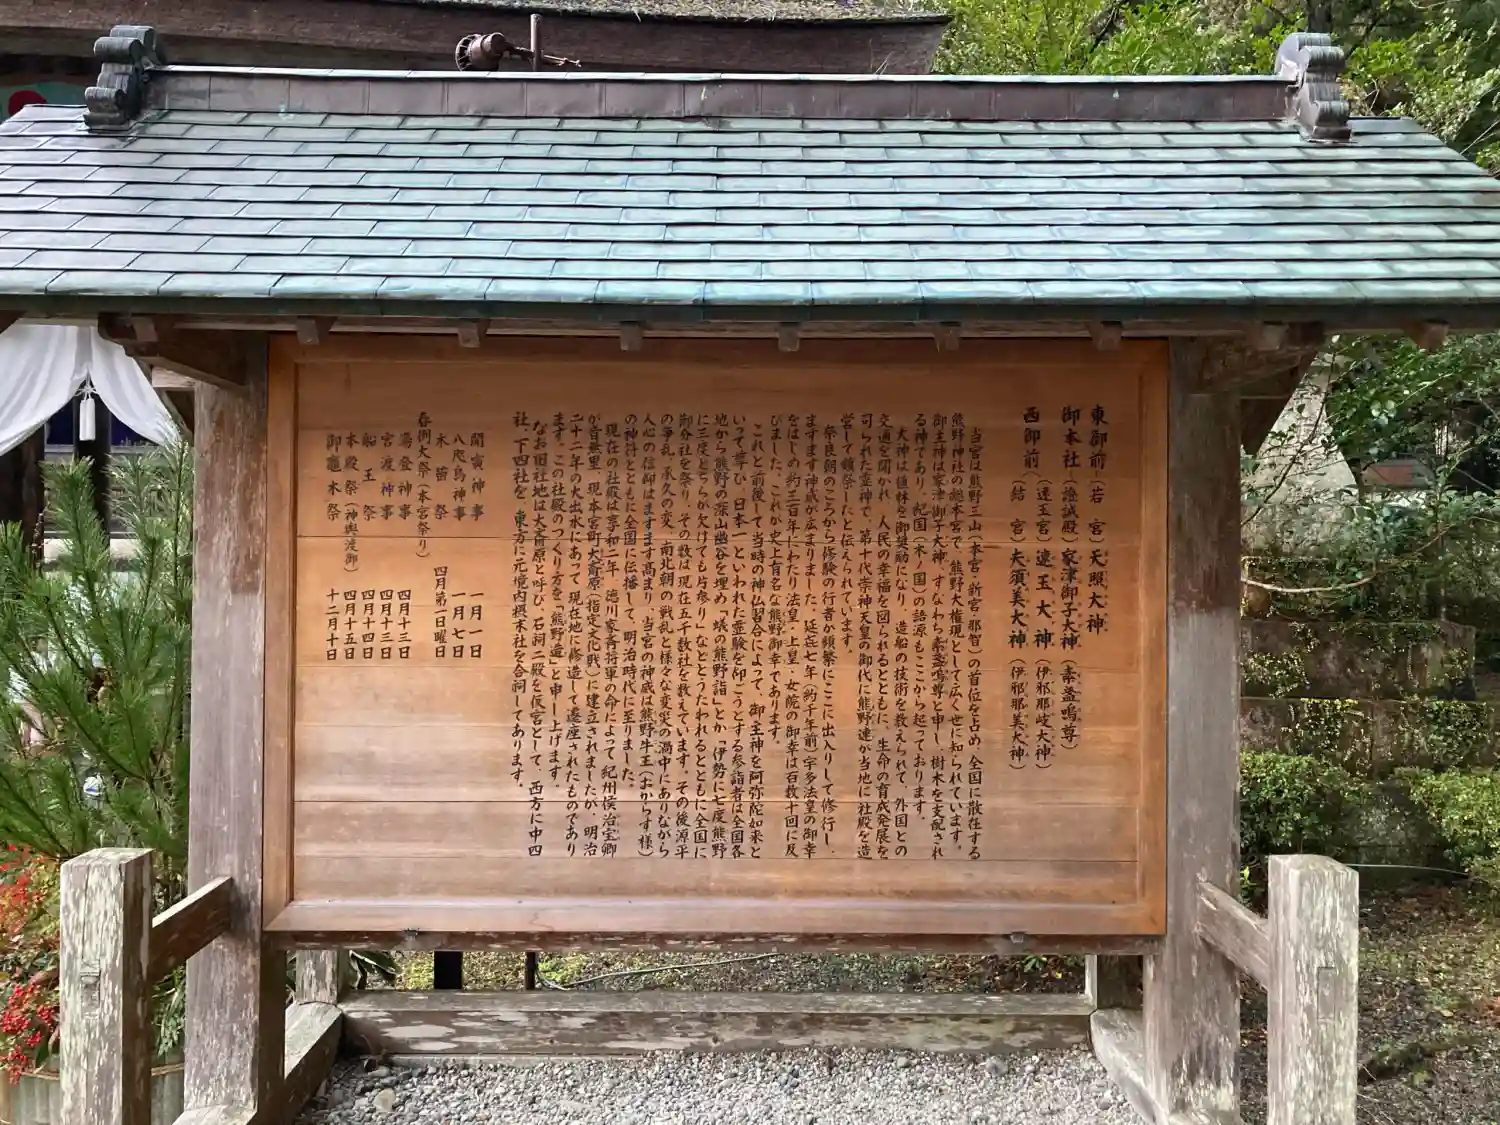 東御前(若宮)天照大神
御本社(證誠殿)家津御子大神(素盞嗚尊)
(速玉宮)速玉大神(伊邪那岐大神)
西御前(結宮)夫須美大神(伊邪那美大神)
当宮は熊野三山(本宮・新宮・那智)の首位を占め、全国に散在する
熊野神社の総本宮で、熊野大権現として広く世に知られています。
御主神は家津御子大神、すなわち素盞嗚尊と申し、樹木を支配され
る神であり、紀国(木ノ国)の語源もここから起っております。
大神は植林を御奨励になり、造船の技術を教えられて、外国との
交通を開かれ、人民の幸福を図られるとともに、生命の育成発展を
司られた霊神で、第十代崇神天皇の御代に熊野連が当地に社殿を造
営して頻祭したと伝えられています。
奈良朝のころから修験の行者が頻繁にここに出入りして修行し、
ますます神威が広まりました。延喜七年(約千年前)宇多法皇の御幸
をはじめ約三百年にわたり法皇・上皇・女院の御幸は百数十回に及
びました。これが史上有名な熊野御幸であります。
これと前後して当時の神仏習合によって、御主神を阿弥陀如来と
いって尊び、日本一といわれた霊験を仰ごうとする参詣者は全国各
地から熊野の深山幽谷を埋め「蟻の熊野詣」とか「伊勢に七度熊野
に三度どちらが欠けても片参り」などとうたわれるとともに全国に
御分社を祭り、その数は現在五千数社を数えています。その後源平
の争乱、承久の変、南北朝の戦乱と様々な変災の渦中にありながら
人心の信仰はますます高まり、当宮の神威は熊野牛王(おからす様)
の神符とともに全国に伝播して、明治時代に至りました。
現在の社殿は享和二年、徳川家斉将軍の命によって紀州侯治宝卿
が音無里、現本宮町大斎原(指定文化財)に建立されましたが、明治
二十二年の大出水にあって現在地に修造して遷座されたものであり
ます。この社殿のつくり方を「熊野造」と申し上げます。
なお旧社地は大斎原と呼び、石祠二殿を仮宮として、西方に中四
社、下四社を、東方に元境内摂末社を合祀してあります。
開寅神事 一月一日
八咫烏神事 一月七日
木苗祭 四月第一日曜日
春例大祭(本宮祭り)
湯登神事 四月十三日
宮渡神事 四月十三日
船玉祭 四月十四日
本殿祭(神輿渡御) 四月十五日
御竈木祭 十二月十日